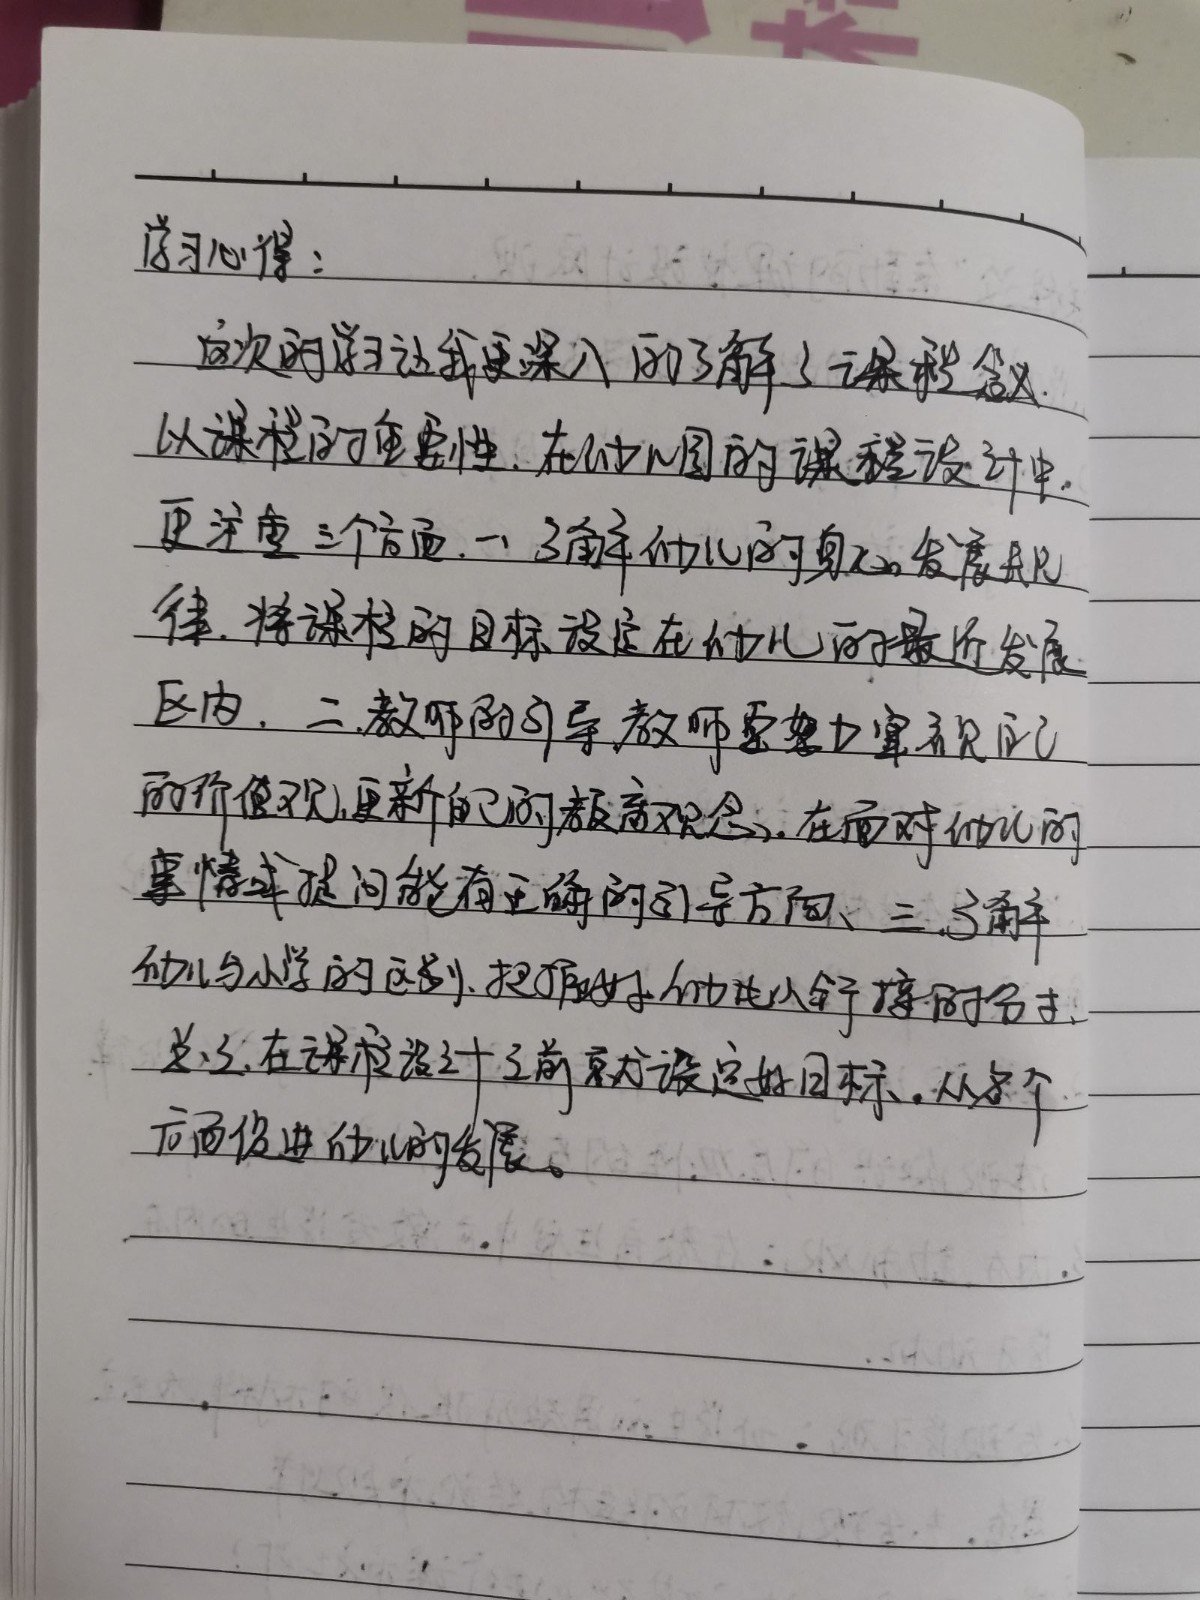 学习心得：
这次的学习让我更深入的了解了课程含义.
以课程的重要性.在幼儿园的课程设计中.
更注重三个方面.一、了解幼儿的身心发展规
律.将课程的目标设定在幼儿的最近发展
区内.二.教师的引导,教师要努力审视自己
的价值观,更新自己的教育观念、.在面对幼儿的
事情或提问能有正确的引导方向、三.了解
幼儿与小学的区别.把握好幼儿小衔接的分寸.
总之.在课程设计之前就设定好目标、.从各个
方面促进幼儿的发展。